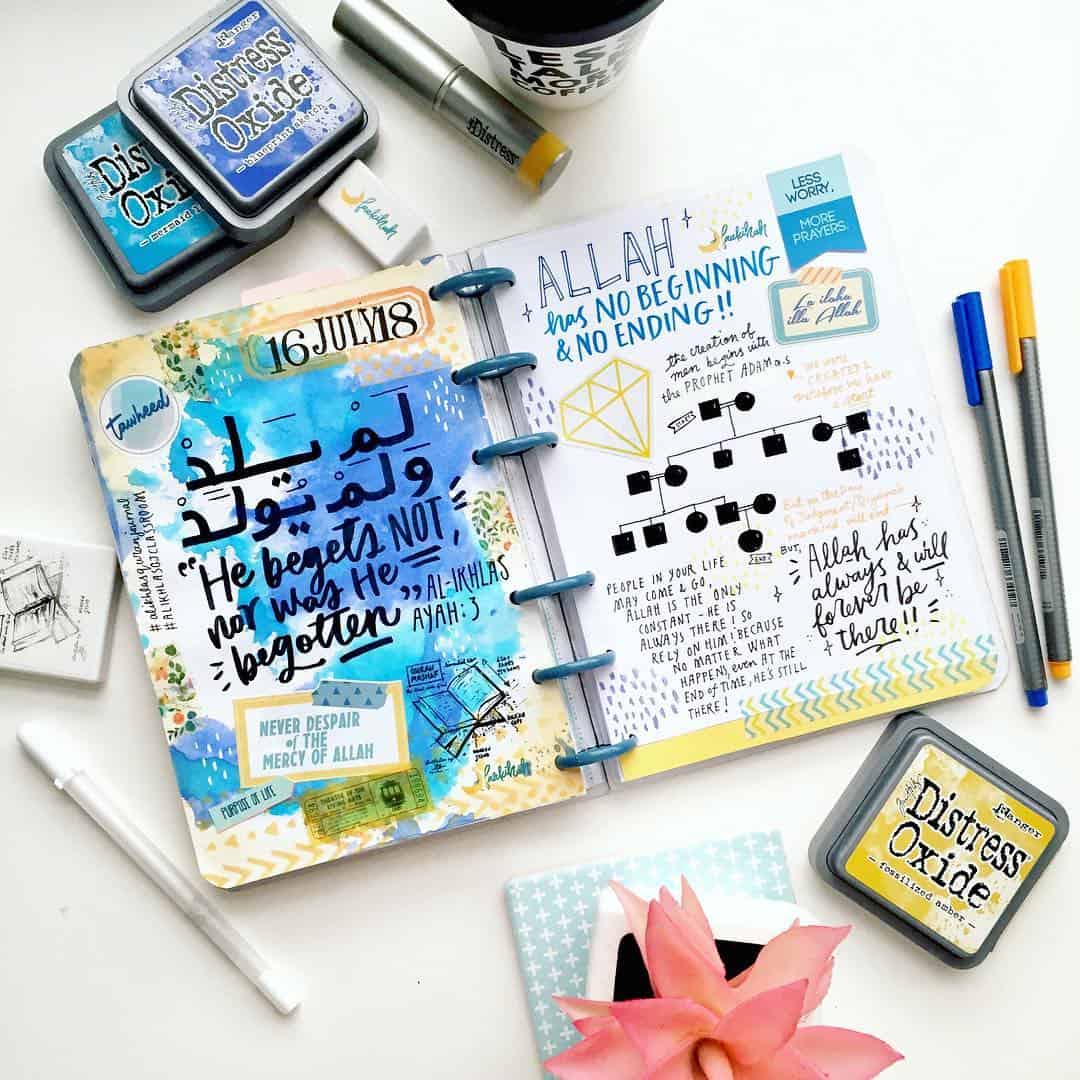 Ranger
Distress
Oxide
— blueprint sketch —
Distress
Oxide
faekihah
Distress
LESS
TALK
MORE
COFFEE
16 JULY 18
tawheed
لَمْ يَلِدْ
وَلَمْ يُولَدْ
"He begets NOT,
nor was He
begotten"
AL-IKHLAS
AYAH: 3
#alikhlasquranjournal
#ALIKHLASQJCLASSROOM
NEVER DESPAIR
of THE
MERCY OF ALLAH
PURPOSE OF LIFE
QURAN
MUSHAF
faekihah
ALLAH
has NO BEGINNING
& NO ENDING!!
faekihah
LESS
WORRY,
MORE
PRAYERS.
La ilaha
illa Allah
the creation of
men begins with
the PROPHET ADAM a.s
we were
CREATED &
therefore we have
a start
START
END?
mankind will end
BUT,
Allah has
always & will
forever be
there!!
PEOPLE IN YOUR LIFE
MAY COME & GO,
ALLAH IS THE ONLY
CONSTANT - HE IS
ALWAYS THERE! SO
RELY ON HIM! BECAUSE
NO MATTER WHAT
HAPPENS, even AT THE
END of TIME, HE'S STILL
THERE!
Ranger
Distress
Oxide
— fossilized amber —